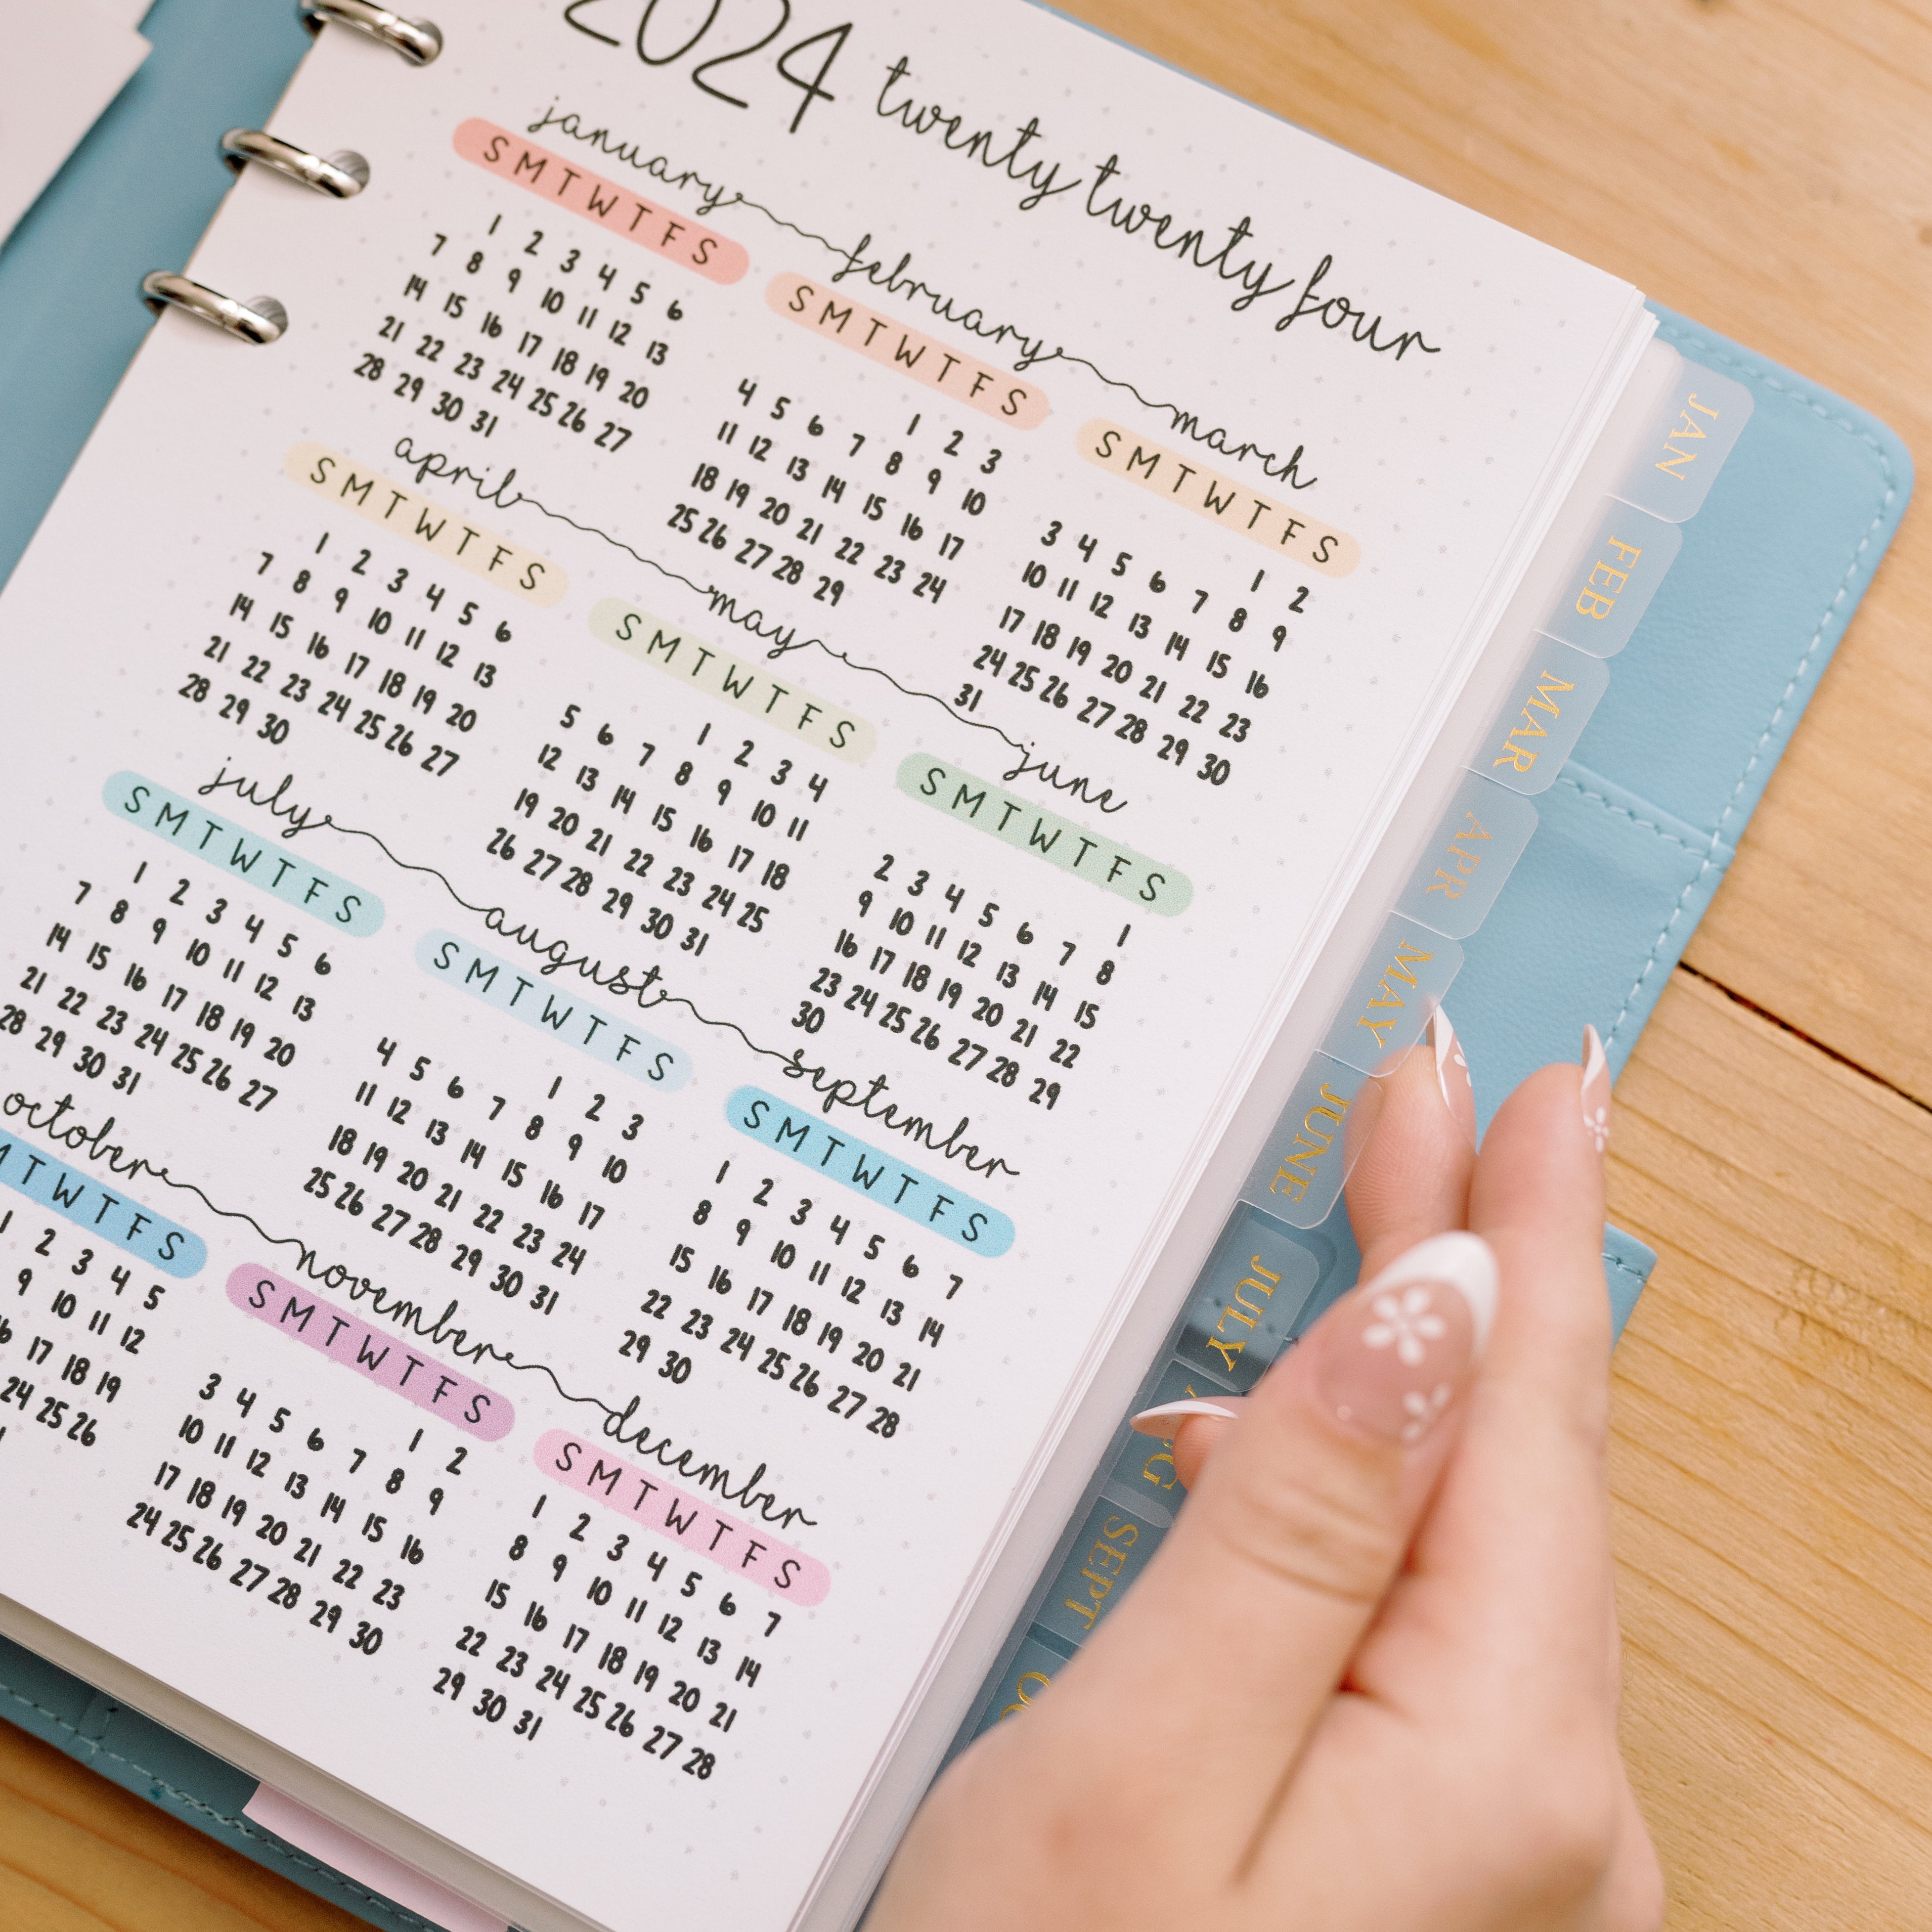 2024 twenty twenty four
january february march
S M T W T F S
1 2 3 4 5 6
7 8 9 10 11 12 13
14 15 16 17 18 19 20
21 22 23 24 25 26 27
28 29 30 31
S M T W T F S
1 2 3
4 5 6 7 8 9 10
11 12 13 14 15 16 17
18 19 20 21 22 23 24
25 26 27 28 29
S M T W T F S
1 2
3 4 5 6 7 8 9
10 11 12 13 14 15 16
17 18 19 20 21 22 23
24 25 26 27 28 29 30
31
april may june
S M T W T F S
1 2 3 4 5 6
7 8 9 10 11 12 13
14 15 16 17 18 19 20
21 22 23 24 25 26 27
28 29 30
S M T W T F S
1 2 3 4
5 6 7 8 9 10 11
12 13 14 15 16 17 18
19 20 21 22 23 24 25
26 27 28 29 30 31
S M T W T F S
1
2 3 4 5 6 7 8
9 10 11 12 13 14 15
16 17 18 19 20 21 22
23 24 25 26 27 28 29
30
july august september
S M T W T F S
1 2 3 4 5 6
7 8 9 10 11 12 13
14 15 16 17 18 19 20
21 22 23 24 25 26 27
28 29 30 31
S M T W T F S
1 2 3
4 5 6 7 8 9 10
11 12 13 14 15 16 17
18 19 20 21 22 23 24
25 26 27 28 29 30 31
S M T W T F S
1 2 3 4 5 6 7
8 9 10 11 12 13 14
15 16 17 18 19 20 21
22 23 24 25 26 27 28
29 30
october november december
M T W T F S
1 2 3 4 5
9 10 11 12
17 18 19
24 25 26
S M T W T F S
1 2
3 4 5 6 7 8 9
10 11 12 13 14 15 16
17 18 19 20 21 22 23
24 25 26 27 28 29 30
S M T W T F S
1 2 3 4 5 6 7
8 9 10 11 12 13 14
15 16 17 18 19 20 21
22 23 24 25 26 27 28
29 30 31
JAN
FEB
MAR
APR
MAY
JUNE
JULY
SEPT